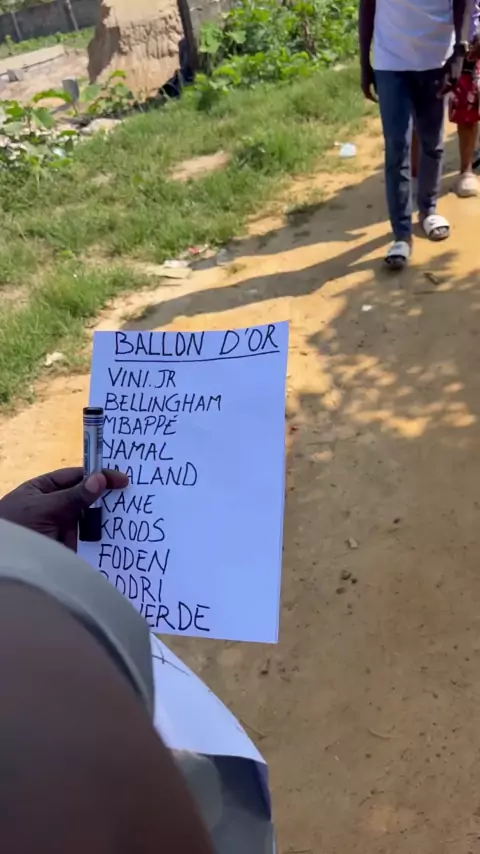 BALLON D'OR
VINI.JR
BELLINGHAM
MBAPPÉ
YAMAL
HAALAND
KANE
KROOS
FODEN
RODRI
VERDE